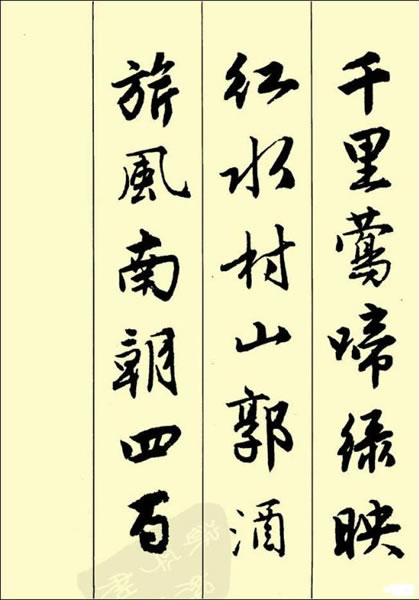 千里莺啼绿映
红水村山郭酒
旂風南朝四百